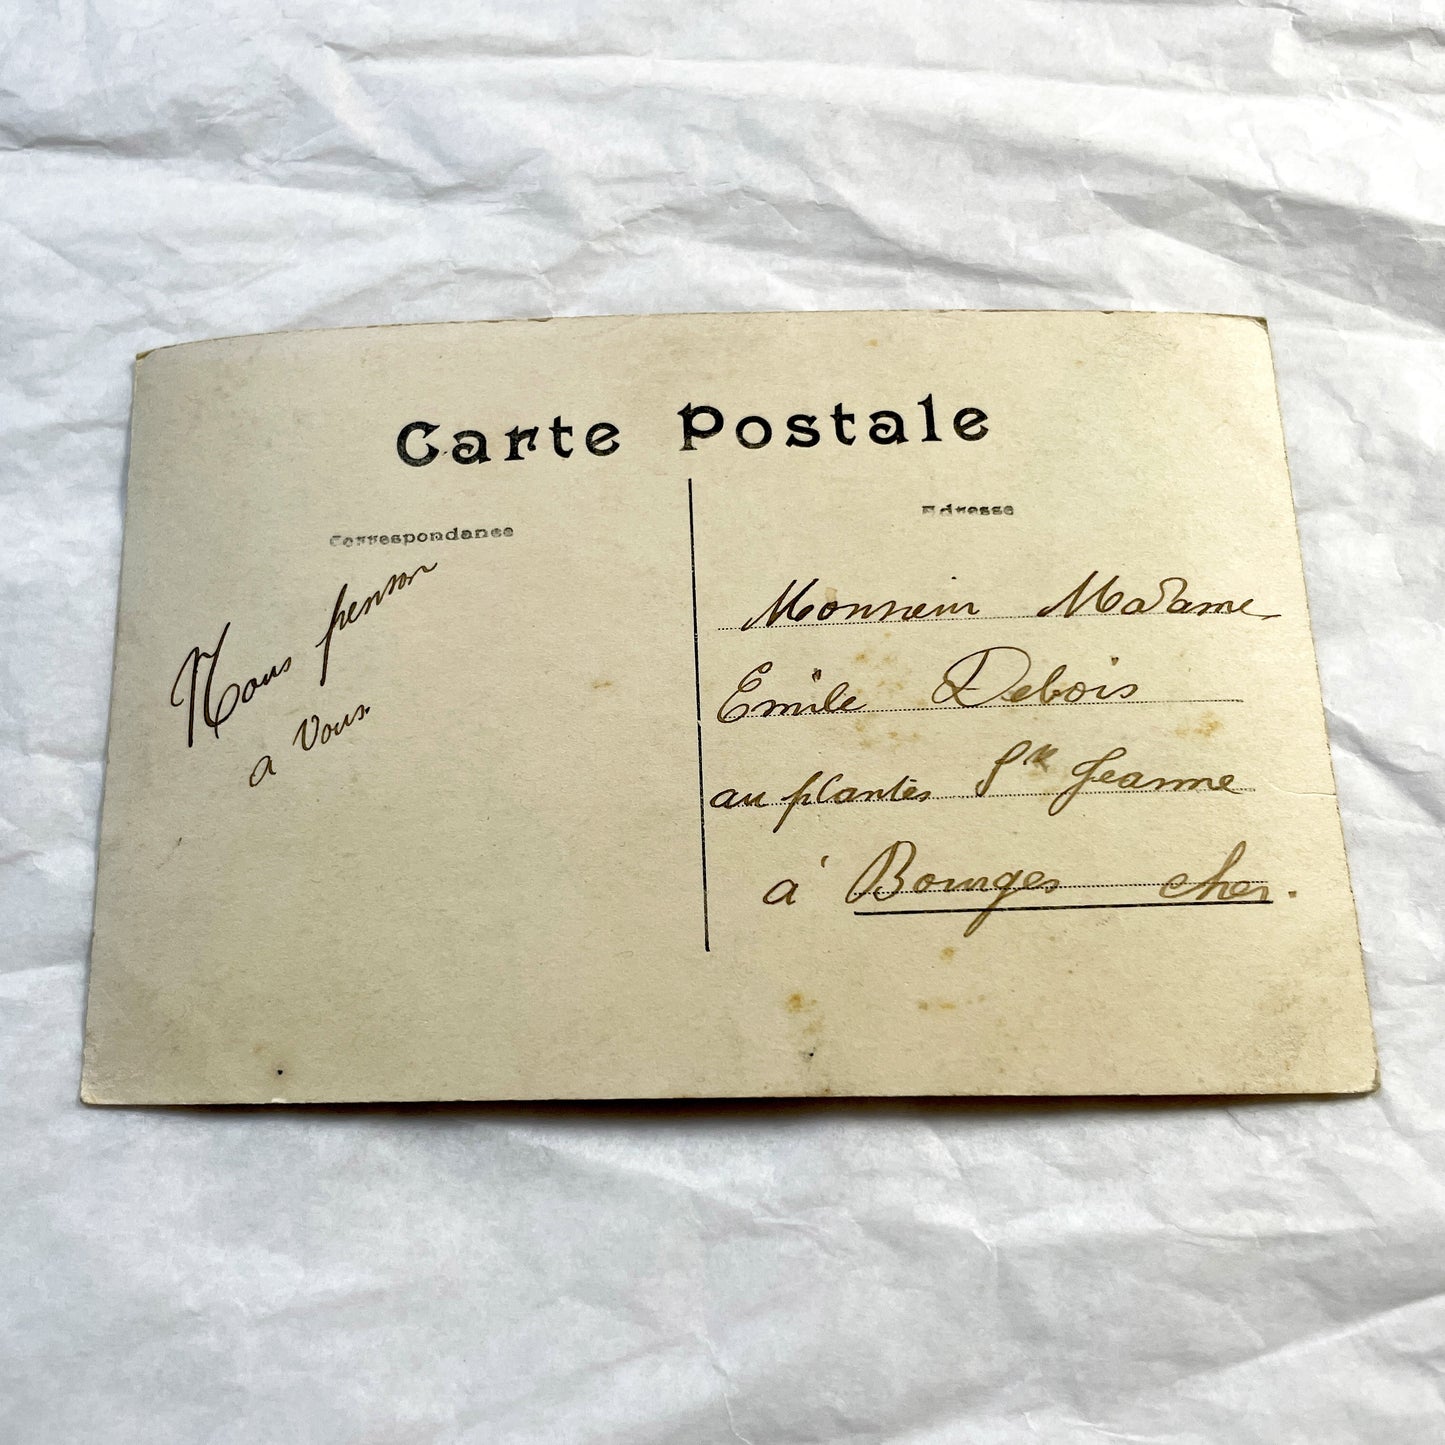 Carte Postale
Correspondance
Nous penson
a Vous.
Adresse
Monsieur Madame
Emile Debois
au plantes Ste Jeanne
à Bourges Cher.